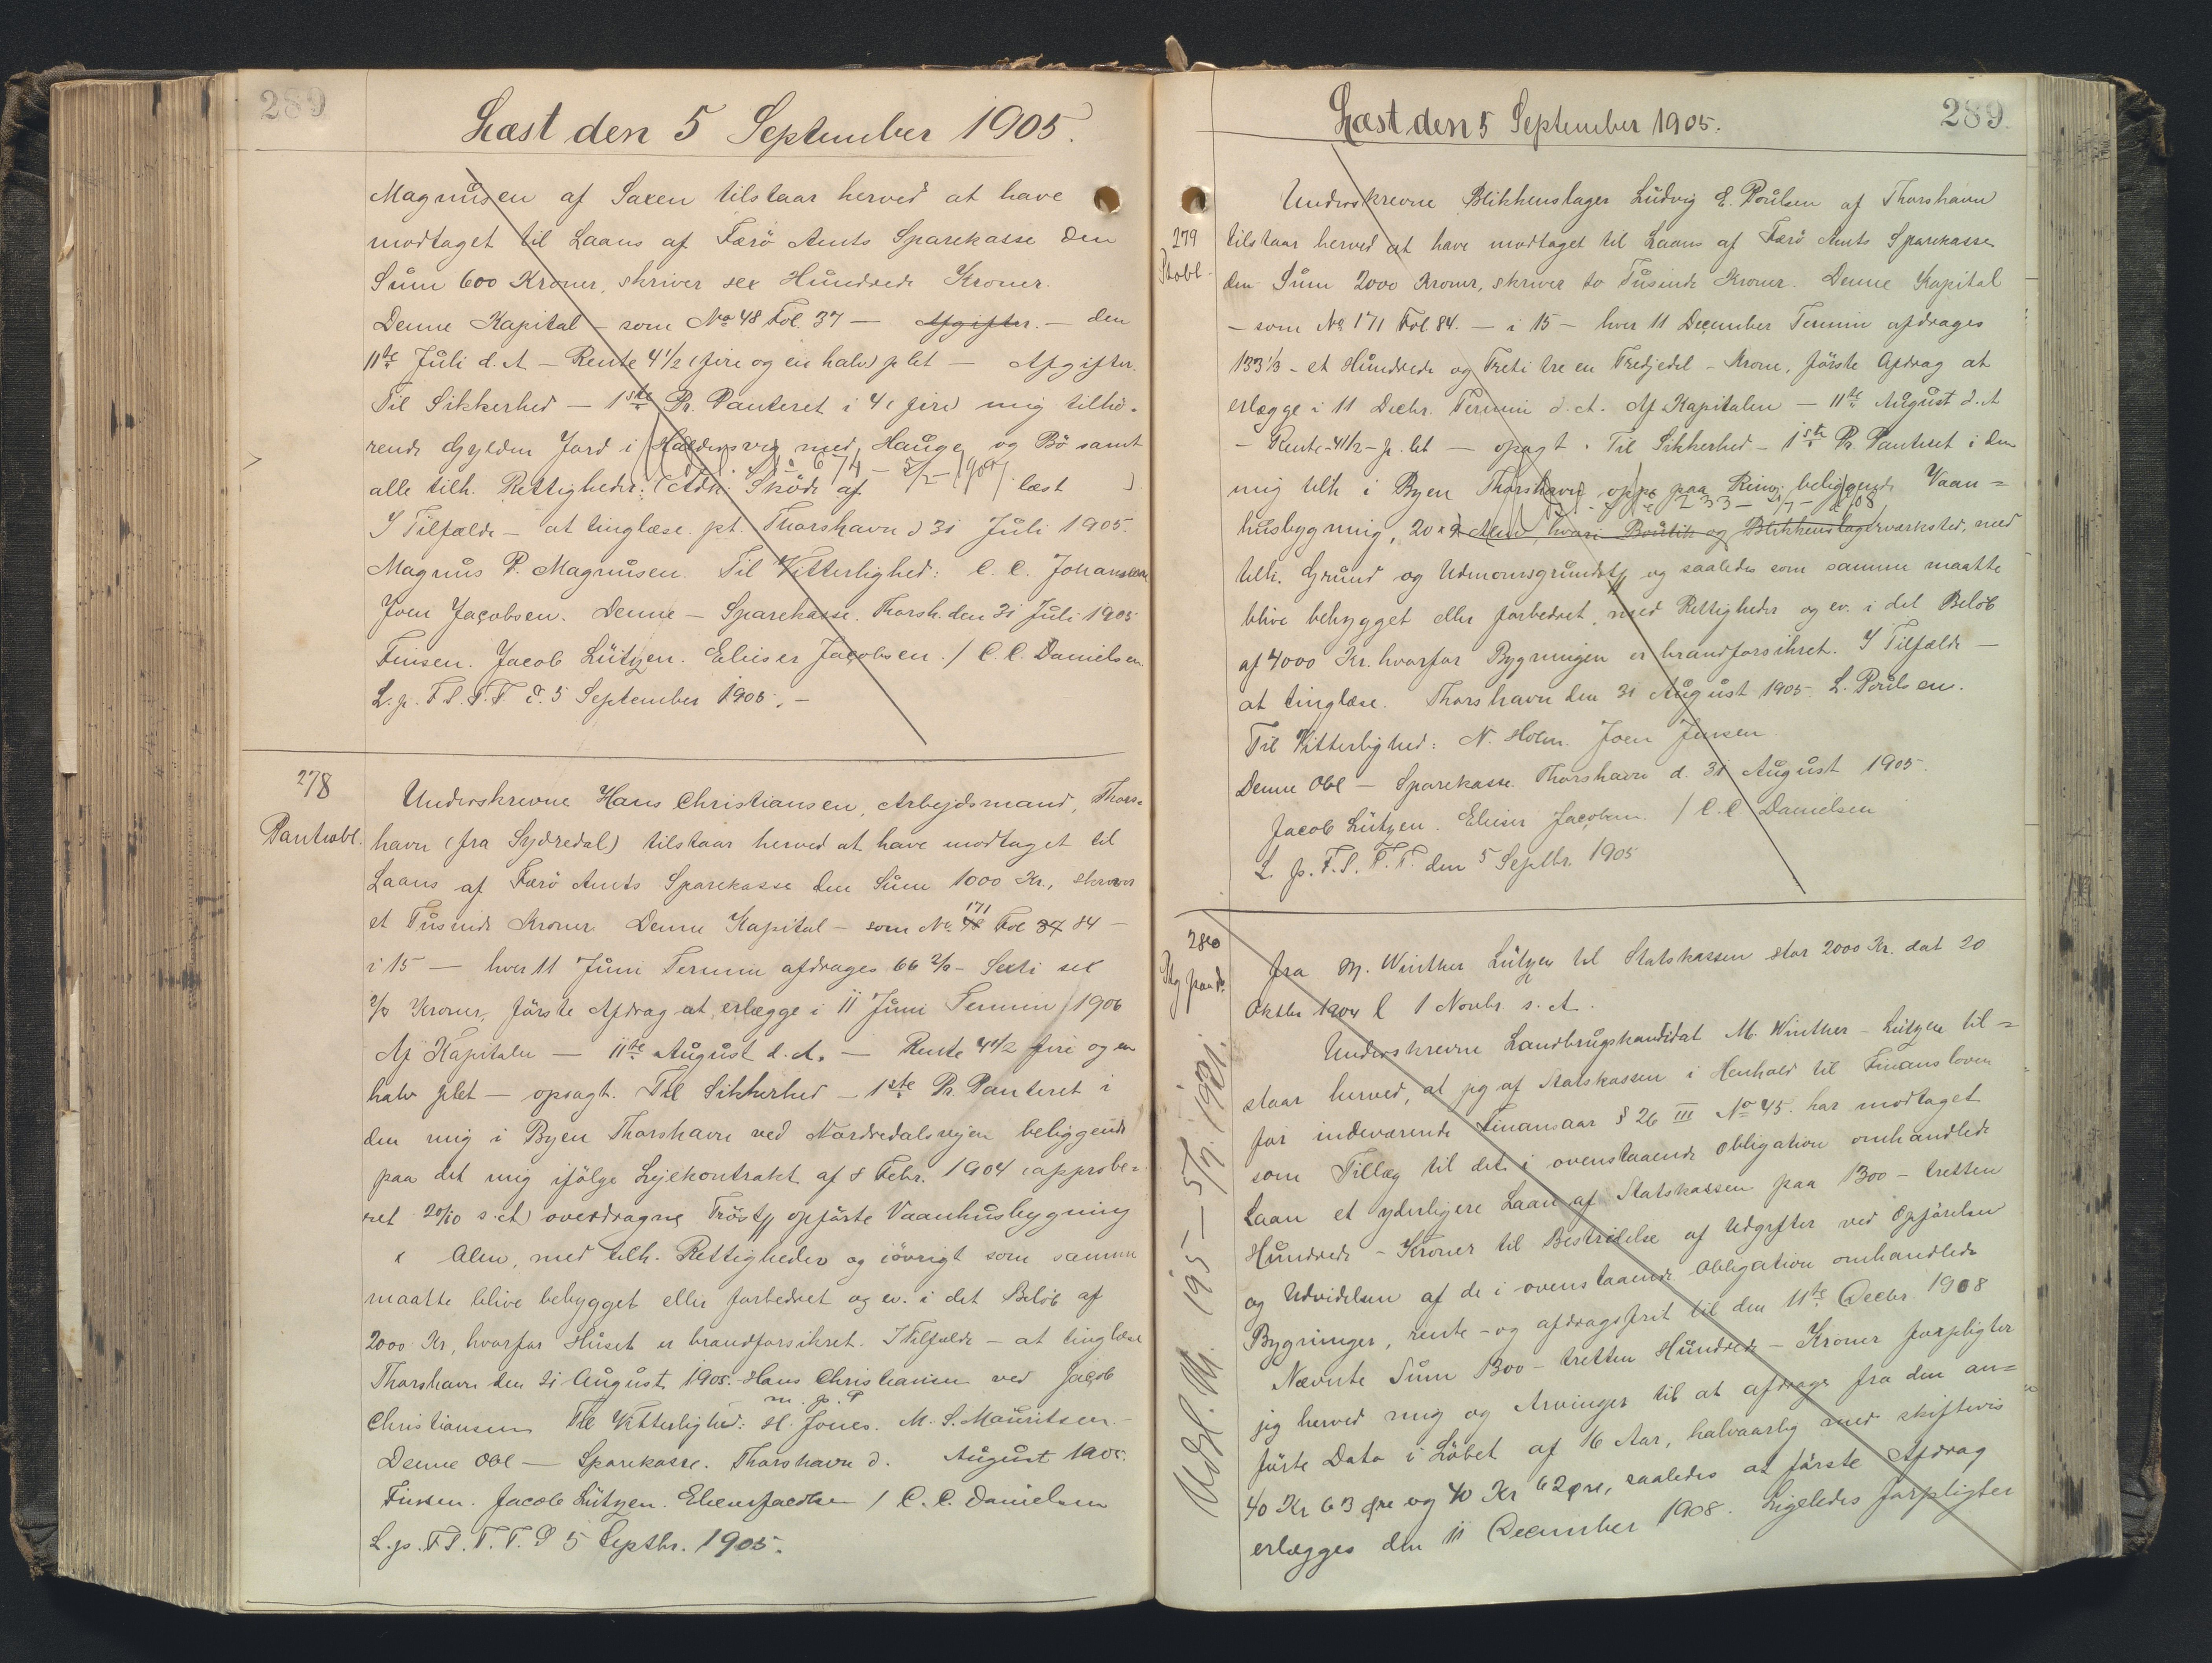 289
Læst den 5 September 1905.
Magnusen af Saxen tilstaar herved at have
modtaget til Laans af Færö Amts Sparekasse den
Sum 600 Kroner, skriver sex Hundrede Kroner.
Denne Kapital – som No 48 Fol. 37 — Afgifter. — den
11te Juli d. A. – Rente 4½ (fire og en halv) p Ct — Afgifter.
Til Sikkerhed — 1ste Pr. Panteret i 4 (fire) mig tilhö-
rende Gylden Jord i Haldersvig med Hauge og Bö samt
alle tilh. Rettigheder: (Adk. Sköde af læst )
I Tilfælde – at tinglæse. pt. Thorshavn d 31 Juli 1905.
Magnus P. Magnusen. Til Vitterlighed: C. C. Johansen
Joen Jacobsen. Denne – Sparekasse. Thorsh. den 31 Juli 1905
Finsen. Jacob Lützen. Elieser Jacobsen. / C. C. Danielsen
L. p. F. S. T. T d. 5 September 1905. –
278
Panteobl.
Underskrevne Hans Christiansen, Arbejdsmand, Thors-
havn (fra Sydredal) tilstaar herved at have modtaget til
Laans af Færö Amts Sparekasse den Sum 1000 Kr., skriver
et Tusinde Kroner. Denne Kapital – som No. 48 171 Fol 37 84 –
i 15 — hver 11 Juni Termin afdrages 66 2/3 – Sexti sex
2/3 Kroner, förste Afdrag at erlægge i 11 Juni Termin 1906
Af Kapitalen — 11te August d. A. — Rente 4½ fire og en
halv pCt — opsagt. Til Sikkerhed – 1ste Pr. Panteret i
den mig i Byen Thorshavn ved Nordredalsvejen beliggende
paa det mig ifölge Lejekontrakt af 8 Febr. 1904 (approbe-
ret 20/10 s. A) overdragne opförte Vaanhusbygning
x Alen, med tilh. Rettigheder og iövrigt som samme
maatte blive bebygget eller forbedret og ev. i det Belöb af
2000 Kr, hvorfor Huset er brandforsikret. I Tilfælde – at tinglæse
Thorshavn den 21 August 1905. Hans Christiansen ved Jacob
m. p. P
Christiansen Til Vitterlighed: H. Jones. M. S. Mauritsen. –
Denne Obl — Sparekasse. Thorshavn d. August 1905.
Finsen. Jacob Lützen. Elieser Jacobsen / C. C. Danielsen
L. p. F S. T. T. D 5 Septbr. 1905.
Læst den 5 September 1905.
289
279
Ptobl.
Underskrevne Blikkenslager Ludvig E. Poulsen af Thorshavn
tilstaar herved at have modtaget til Laans af Færö Amts Sparekasse
den Sum 2000 Kroner, skriver to Tusinde Kroner. Denne Kapital
– som No 171 Fol 84. — i 15 – hver 11 December Termin afdrages
133 1/3 – et Hundrede og Treti tre en Tredjedel – Krone, förste Afdrag at
erlægge i 11 Decbr. Termin d. A. Af Kapitalen — 11te August d. A
– Rente – 4½ – p. Ct — opsagt. Til Sikkerhed – 1ste Pr. Panteret i den
mig tilh i Byen Thorshavn oppe paa beliggende Vaan-
husbygning, 20 x 9 Alen hvori Boutik og Blikkenslagerværksted, med
tilh. Grund og og saaledes som samme maatte
blive bebygget eller forbedret, med Rettigheder og ev. i det Belöb
af 4000 Kr. hvorfor Bygningen er brandforsikret. I Tilfælde —
at tinglæse. Thorshavn den 31 August 1905. L. Poulsen.
Til Vitterlighed: N. Holm. Joen Jensen
Denne Obl – Sparekasse. Thorshavn d. 31 August 1905.
Jacob Lützen. Elieser Jacobsen. / C. C Danielsen
L. p. F. S. T. T. den 5 Septbr. 1905
280
fra M. Winther Lützen til Statskassen stor 2000 Kr. dat 20
Oktbr 1904 l 1 Novbr s. A.
Underskrevne Landbrugskandidat M. Winther – Lützen til-
staar herved, at jeg af Statskassen i Henhold til Finansloven
for indeværende Finansaar § 26 III No 45. har modtaget
som Tillæg til det i ovenstaaende Obligation omhandlede
Laan et yderligere Laan af Statskassen paa 1300 – tretten
Hundrede – Kroner til Bestridelse af Udgifter ved Opförelsen
og Udvidelsen af de i ovenstaaende Obligation omhandlede
Bygninger, rente – og afdragsfrit til den 11te Decbr. 1908
Nævnte Sum 1300 – tretten Hundrede – Kroner forpligter
jeg herved mig og Arvinger til at afdrage fra den an-
förte Dato i Löbet af 16 Aar, halvaarlig med skiftevis
40 Kr 63 Øre og 40 Kr 62 Øre, saaledes at förste Afdrag
erlægges den 11 December 1908. Ligeledes forpligter